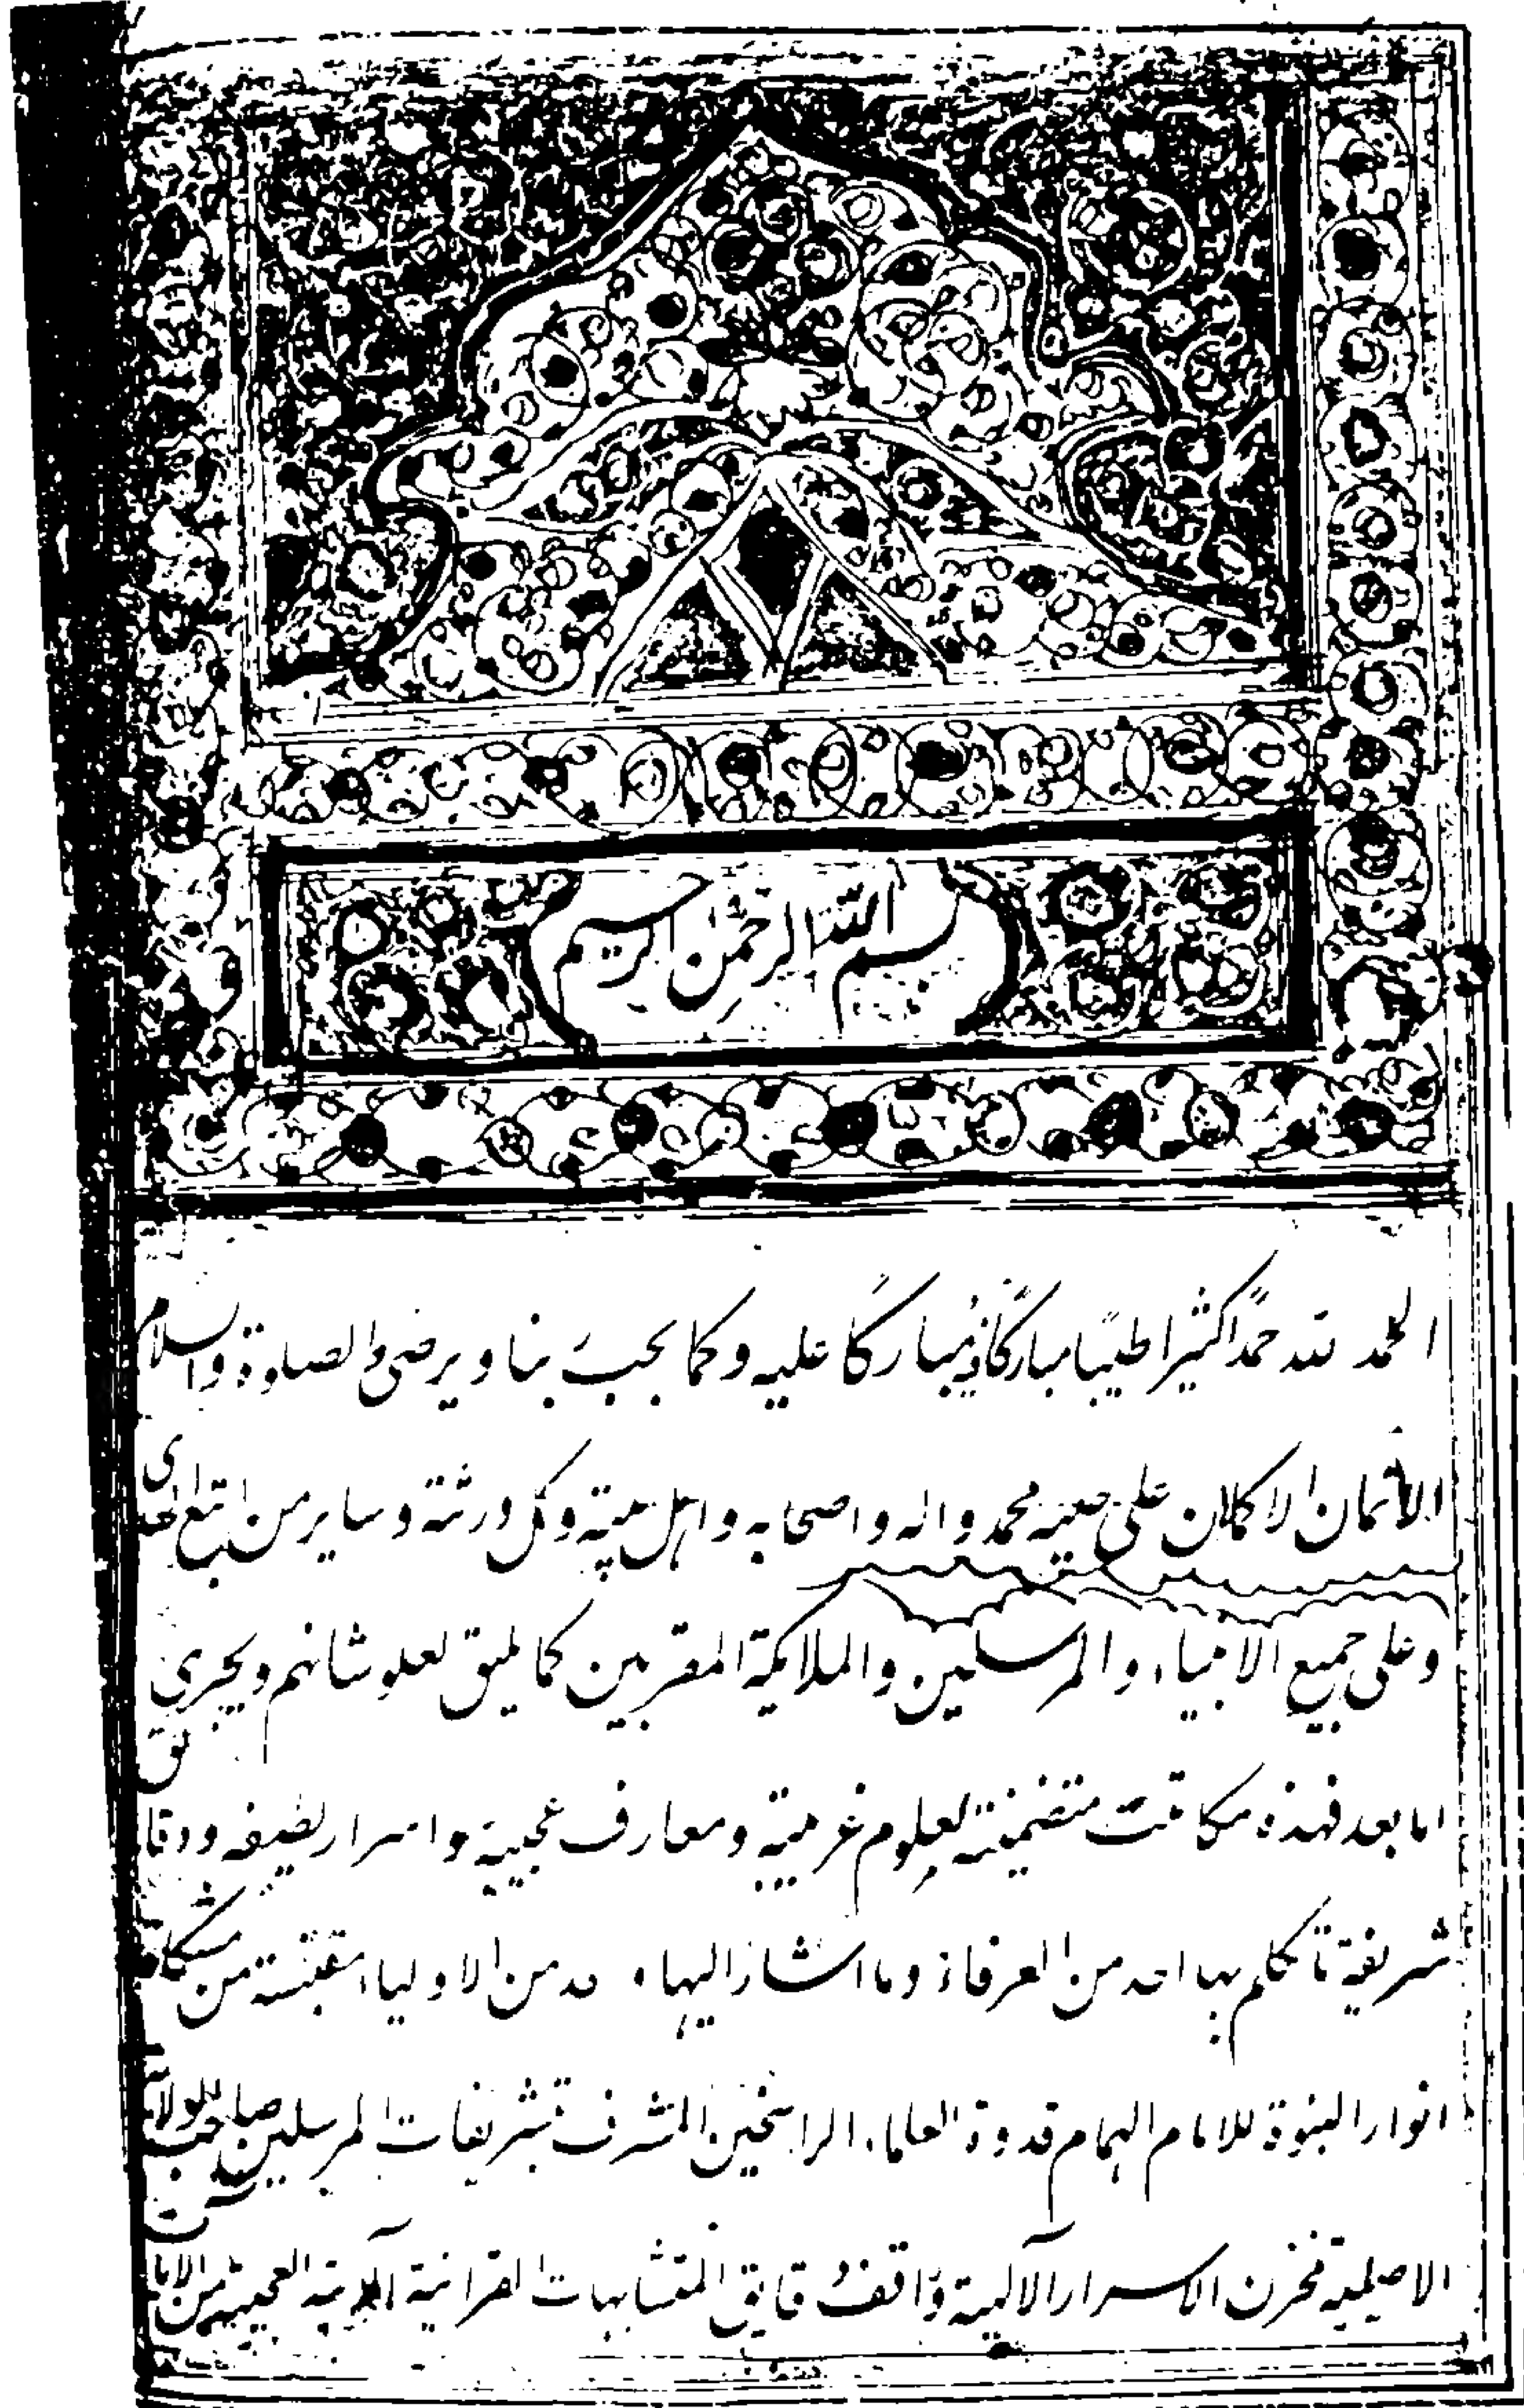 بسم الله الرحمن الرحيم
الحمد لله حمدًا كثيرا طيبًا مباركًا فيه مباركًا عليه وكما يحب ربنا ويرضى والصلوة والسلام
الاتمان الاكملان على حبيبه محمد واله واصحابه واهل بيته وكل ورثته وساير من اتبع الهدى
وعلى جميع الانبياء والمرسلين والملايكة المقربين كما يليق لعلو شانهم ويحري
اما بعد فهذه مكاتيب متضمنة لعلوم غريبة ومعارف عجيبة واسرار لطيفه ودقايق
شريفة ما تكلم بها احد من العرفاء وما اشار اليها احد من الاولياء مقتبسة من مشكاة
انوار النبوة للامام الهمام قدوة العلماء الراسخين المشرف بتشريفات المرسلين صاحب الولاية
الاصلية مخزن الاسرار الآلهية واقف دقايق المتشابهات القرانية العجيبة من الايات